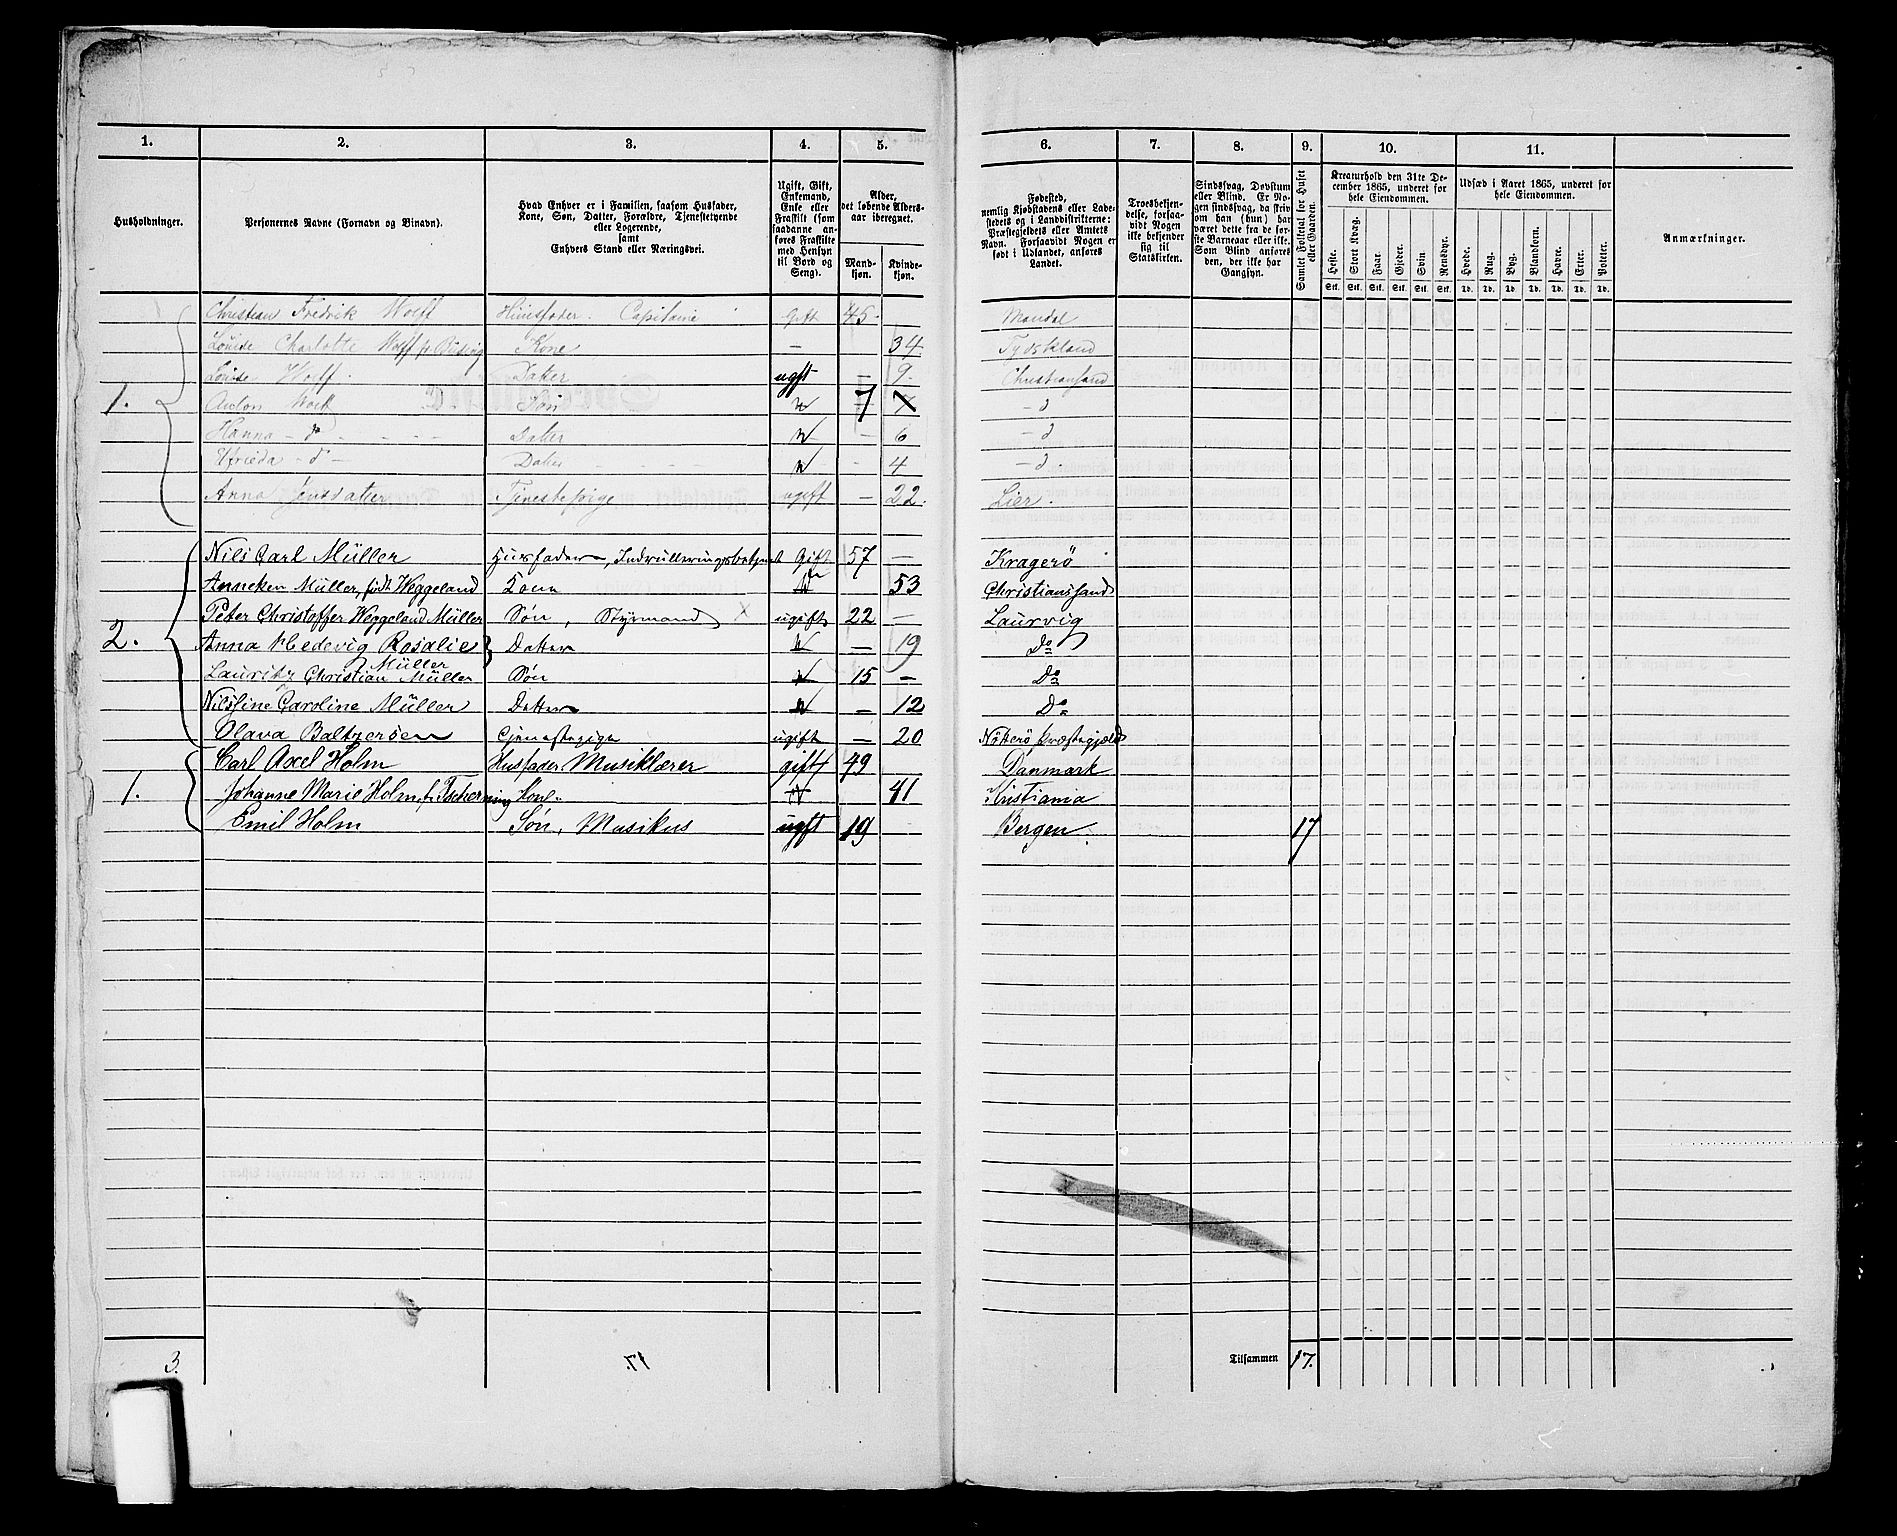 1. 2. 3. 4. 5. 6. 7. 8. 9. 10. 11.
Husholdninger.
Personernes Navne (Fornavn og Binavn).
Hvad Enhver er i Familien, saasom Husfader,
Kone, Søn, Datter, Forældre, Tjenestetyende
eller Logerende,
samt
Enhvers Stand eller Næringsvei.
Ugift, Gift,
Enkemand,
Enke eller
Fraskilt (som
saadanne an-
føres Fraskilte
med Hensyn
til Bord og
Seng).
Alder,
det løbende Alders-
aar iberegnet.
Mand-
kjøn.
Kvinde-
kjøn.
Fødested,
nemlig Kjøbstadens eller Lade-
stedets og i Landdistrikterne:
Præstegjeldets eller Amtets
Navn. Forsaavidt Nogen er
født i Udlandet, anføres
Landet.
Troesbekjen-
delse, forsaa-
vidt Nogen
ikke bekjender
sig til
Statskirken.
Sindssvag, Døvstum
eller Blind. Er No-
gen sindssvag, da skriv
om han (hun) har
været dette fra de før-
ste Barneaar eller ikke.
Som Blind anføres
den, der ikke har
Gangsyn.
Samlet Folketal for Huset
eller Gaarden.
Kreaturhold den 31te De-
cember 1865, underet for
hele Eiendommen.
Heste. Stort Kvæg. Faar. Gjeder. Svin. Rensdyr.
Stk. Stk. Stk. Stk. Stk. Stk.
Udsæd i Aaret 1865, underet for
hele Eiendommen.
Hvede. Rug. Byg. Blandkorn. Havre. Erter. Poteter.
Td. Td. Td. Td. Td. Td. Td.
Anmærkninger.
Christian Fredrik Wolff Huusfader. Capitaine Gift 45. Mandal
Louise Charlotte Wolff Kone - 34. Tydskland
Louise Wolff Datter ugft - 9. Christiansand
1. Anton Wolff Søn 7 7 - d
Hanna - d - Datter - 6 - d
- d - Datter - 4 - d.
Anna Jensdatter Tjenestepige ugift - 22. Lier.
Nils Carl Müller Husfader, Indrulleringsbetjent Gift 57 - Kragerö
Anneken Müller, født Weggeland Kone 53 Christianssand
Peter Christoffer Weggeland Müller Søn, Styrmand x ugift 22 - Laurvig
2. Anna Hedevig Rosalie Müller Datter - 19 Do
Lauritz Christian Müller Søn 15 - Do
Nilsine Caroline Müller Datter - 12 Do
Olava Baltzersen Tjenestepige ugift - 20 Nötterö Præstegjæld
Carl Axel Holm Husfader Musiklærer gift 49 Danmark
1. Johanne Marie Holm, f. Tscherning Kone 41 Kristiania
Emil Holm Søn, Musikus ugft 19 Bergen. 17
3. 17. Tilsammen 17.